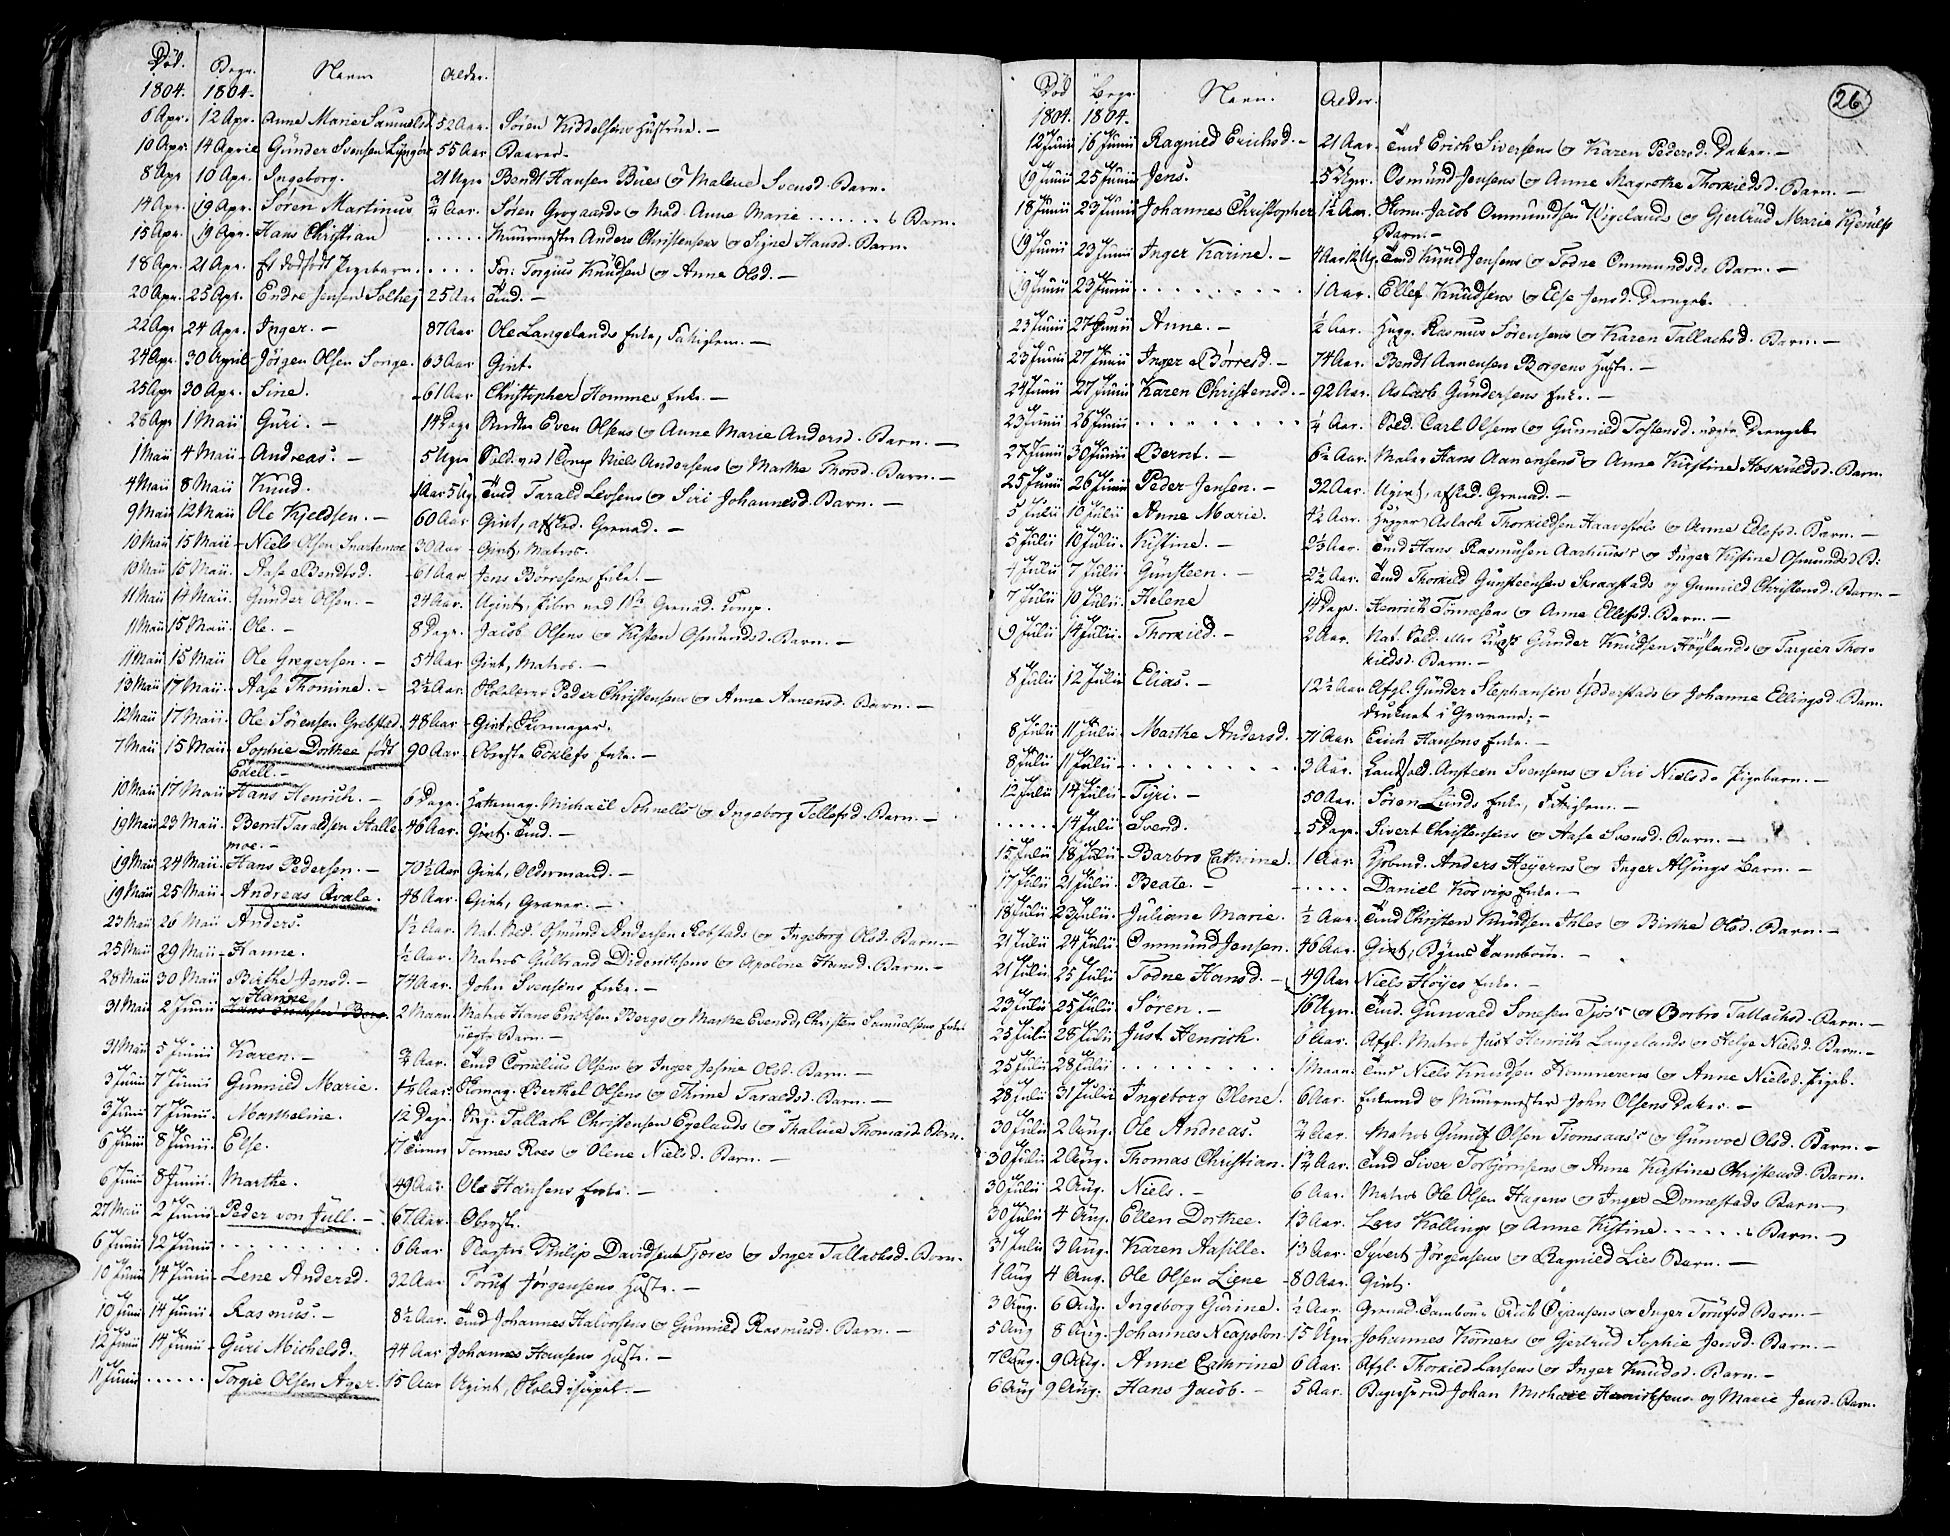 Død. Begr. Navn Alder.
1804. 1804.
6 Apr. 12 Apr. Anne Marie Samuelsd 52 Aar. Søren Kiddelsens Hustrue. –
10 Apr. 14 April Gunder Svensen 55 Aar
8 Apr 10 Apr. Ingeborg. 21 Uger Bendt Hansen Bues og Malene Svensd. Barn.
14 Apr. 19 Apr. Søren Martinus ¾ Aar. Søren Grogaards og Mad. Anne Marie . . . . . . . s Barn.
15 Apr. 19 Apr. Hans Christian . . . . . . Muurmester Anders Christensens og Signe Hansd. Barn.
18 Apr. 21 Apr. Et dødfødt Pigebarn. . . . . For: Torgius Knudsen og Anne Olsd. –
20 Apr. 25 Apr. Endre Jensen Solhej 25 Aar Tind. –
22 Apr 24 Apr. Inger. – 87 Aar Ole Langelands Enke, Fattiglem. –
24 Apr. 30 April Jørgen Olsen Songe. 63 Aar Givt.
25 Apr. 30 Apr. Sine. 61 Aar Christopher Hommes Enke. –
26 Apr 1 Maii Guri. – 14 Dage Even Olsens og Anne Marie Andersd. Barn. –
1 Maii 4 Maii Andreas. – 5 Uger Sold. ved 1 Comp Niels Andersens og Marthe Thorsd. Barn. –
4 Maii 8 Maii Knud. 1 Aar 5 Ug. Tind Tarald Lessens og Siri Johannesd. Barn. –
9 Maii 12 Maii Ole Kjeldsen. – 60 Aar Givt, afsked. Grenad. –
10 Maii 15 Maii Niels Olsen Snartemoe 30 Aar Givt, Matros.
10 Maii 15 Maii. Aase Bendtsd. 61 Aar Jens Børresens Enke. –
11 Maii 14 Maii. Gunder Olsen. – 24 Aar. Ugivt, Piber ved Grenad. Comp.
11 Maii 15 Maii. Ole. – 8 Dage. Jacob Olsens og Kirsten Osmundsd. Barn. –
11 Maii 15 Maii Ole Gregersen. – 54 Aar Givt, Matros. –
13 Maii 17 Maii Aase Thomine. – 2½ Aar. Peder Christensens og Anne Aanensd. Barn. –
12 Maii 17 Maii. Ole Sørensen Grebstad. 48 Aar Givt, Skomager.
7 Maii 15 Maii Sophie Dorthee født 90 Aar Obrist Ecklefs Enke. –
Edell. –
10 Maii 17 Maii Hans Henrich. – 6 Dage. Hattemag. Michaël Schnells og Ingeborg Tellefsd. Barn –
19 Maii 23 Maii. Bernt Taraldsen Stalle 46 Aar. Givt. Tind. –
moe. –
19 Maii 24 Maii. Hans Pedersen. – 70½ Aar Givt, Oldermand. –
19 Maii 25 Maii Andreas Qvale. 48 Aar. Givt, Graver. –
23 Maii 26 Maii Anders. 1½ Aar. Nat. Sold. Osmund Andersen Robstads og Ingeborg Olsd. Barn. –
25 Maii 29 Maii Hanne. ½ Aar. Matros Gulbrand Didericksens og Apolone Hansd. Barn. –
28 Maii 30 Maii Birthe Jensd. – 74 Aar. John Svensens Enke. –
31 Maii 2 Junii Hanne 2 Maan. Matros Hans Ericksen Bergs og Marthe Evensd, Christen Samuelsens Enke
uægte Barn. –
31 Maii 5 Junii Karen. – ¾ Aar. Tind Cornelius Olsens og Inger Jesine Olsd. Barn. –
3 Junii 7 Junii Gunnild Marie. 1¼ Aar. Skomag. Berthel Olsens og Thrine Taraldsd. Barn. –
3 Junii 7 Junii Martheline. 12 Dage. Tallach Christensen Egelands og Thaline Thomasd. Barn.
6 Junii 8 Junii. Else. 17 Timer Tønnes Roes og Olene Nielsd. Barn. –
6 Junii 8 Junii. Marthe. 49 Aar Ole Hansens Enke. –
27 Maii 2 Junii Peder von Jull. – 67 Aar. Obrist. –
6 Junii 12 Junii . . . . . . . . . . 6 Aar. Philip Davidsen Tjøres og Inger Tallachsd. Barn.
10 Junii 14 Junii Lene Andersd. 32 Aar Toruf Jørgensens Hustr. –
10 Junii 14 Junii. Rasmus. – 8½ Aar. Tind Johannes Halvorsens og Gunnild Rasmusd. Barn. –
12 Junii 14 Junii Guri Michelsd. 44 Aar Johannes Hansens Hustr. –
11 Junii . . . . . . Torgie Olsen Ager. 15 Aar Ugivt, Skoledisipel. –
26
Død Begr. Navn. Alder.
1804. 1804.
12 Junii 16 Junii Ragnild Erichsd. – 21 Aar. Tind Erich Siversens og Karen Pedersd. Datter. –
19 Junii 25 Junii Jens. 5 Uger. Osmund Jensens og Anne Magrethe Thorkildsd. Barn. –
18 Junii 23 Junii Johannes Christopher 1½ Aar. Jacob Ommundsen Vigelands og Giertrud Marie
Barn. –
19 Junii 23 Junii Inger Karine. – 4 Aar 12 Ug. Tind Knud Jensens og Todne Ommundsd. Barn. –
19 Junii 23 Junii . . . . . . . . . 1 Aar. Ellef Knudsens og Else Jensd. Drengeb.
23 Junii 27 Junii Anne. – ½ Aar. Hugg. Rasmus Sørensens og Karen Tallachsd. Barn. –
23 Junii 27 Junii Inger Børresd. – 74 Aar. Bendt Aanensen Borgens Hustr. –
24 Junii 27 Junii Karen Christensd. – 92 Aar. Aslach Gundersens Enke. –
23 Junii 26 Junii . . . . . . . . . ¼ Aar. Sold. Carl Olsens og Gunnild Tostensd. uægte Drengeb.
27 Junii 30 Junii Bernt. – 6½ Aar. Maler Hans Aanensens og Anne Kirstine Hoskuldsd. Barn.
25 Junii 26 Junii Peder Jensen. – 32 Aar. Ugivt, afsked. Grenad. –
5 Julii 10 Julii Anne Marie. 4½ Aar. Hugger Aslach Thorkildsen Haavestøls og Anne Ellefsd. Barn. –
5 Julii 10 Julii. Kistine. – 2½ Aar. Tind Hans Rasmusen Aarhuus's og Inger Kistine Osmundsd B:
4 Julii 7 Julii. Gunsteen. – 2½ Aar. Tind Thorkild Gunsteensen Skraastads og Gunnild Christensd. Barn. –
7 Julii 10 Julii. Helene 14 Dage. Henrich Tønnesens og Anne Ellefsd. Barn. –
9 Julii 14 Julii. Thorkild. – 2 Aar. Nat. Sold. Gunder Knudsen Høylands og Targier Thor-
kildsd. Barn. –
8 Julii 12 Julii Elias. – 12½ Aar Afgl. Gunder Stephansen Fidderstads og Johanne Ellingsd. Barn.
druknet i Gravene. –
8 Julii 11 Julii. Marthe Andersd. 71 Aar. Erich Hansens Enke. –
8 Julii 11 Julii . . . . . . . . . 3 Aar. Landsold. Ansteen Svensens og Siri Nielsd. Pigebarn. –
12 Julii 14 Julii Tyri. – 50 Aar. Søren Lunds Enke, Fattiglem. –
. . . . . . 14 Julii Svend. 5 Dage. Sivert Christensens og Aase Svensd. Barn. –
15 Julii 18 Julii Barbro Cathrine. 1 Aar. Anders Heyerns og Inger Alsings Barn. –
17 Julii 21 Julii. Beate. – . . . . . Daniel Korvigs Enke. –
18 Julii 23 Julii. Juliane Marie. ½ Aar. Tind Christen Knudsen Ihles og Birthe Olsd. Barn. –
21 Julii 24 Julii. Ommund Jensen. 46 Aar. Givt, Byens Tambour. –
21 Julii 25 Julii Todne Hansd. – 49 Aar Niels Høyes Enke. –
23 Julii 25 Julii Søren. – 16 Uger. Tind. Gunvald Sonesen Tjos's og Borbro Tallachsd. Barn. –
25 Julii 28 Julii Just Henrich. 6 Aar. Afgl. Matros Just Henrich Langelands og Helje Nielsd. Barn. –
25 Julii 28 Julii. . . . . . . . . . 1 Maan. Tind Niels Knudsen og Anne Nielsd. Pigeb.
28 Julii 31 Julii Ingeborg Olene. 6 Aar. Enkemd og Muurmester John Olsens Datter. –
30 Julii 2 Aug. Ole Andreas. ¾ Aar. Matros Olsen Tiomsaas's og Gunvor Olsd. Barn. –
30 Julii 2 Aug. Thomas Christian. 1¾ Aar. Tind Siver Torbjørnsens og Anne Kirstine Christensd. Barn.
30 Julii 2 Aug. Niels. – 6 Aar. Matros Ole Olsen Hagens og Inger Donnestads Barn –
30 Julii 4 Aug. Ellen Dorthee. 13 Aar. Lars Kollings og Anne Kistine . . . . . . s Barn. –
31 Julii 3 Aug. Karen Aasille. 13 Aar. Syvert Jørgensens og Ragnild Lies Barn. –
1 Aug 4 Aug. Ole Olsen Liene 80 Aar. Givt.
3 Aug. 6 Aug. Ingeborg Gurine. ½ Aar. Grenad. Tambour og Inger Torufsd Barn. –
5 Aug 8 Aug. Johannes Neapolon 15 Uger Johannes Kørners og Gjertrud Sophie Jensd. Barn.
7 Aug. 9 Aug. Anne Cathrine 6 Aar. Afgl. Thorkild Larsens og Inger Knudsd. Barn. –
6 Aug 9 Aug. Hans Jacob. – 5 Aar. Bagersvend Johan Michael Henrichsens og Marie Jensd. Barn.